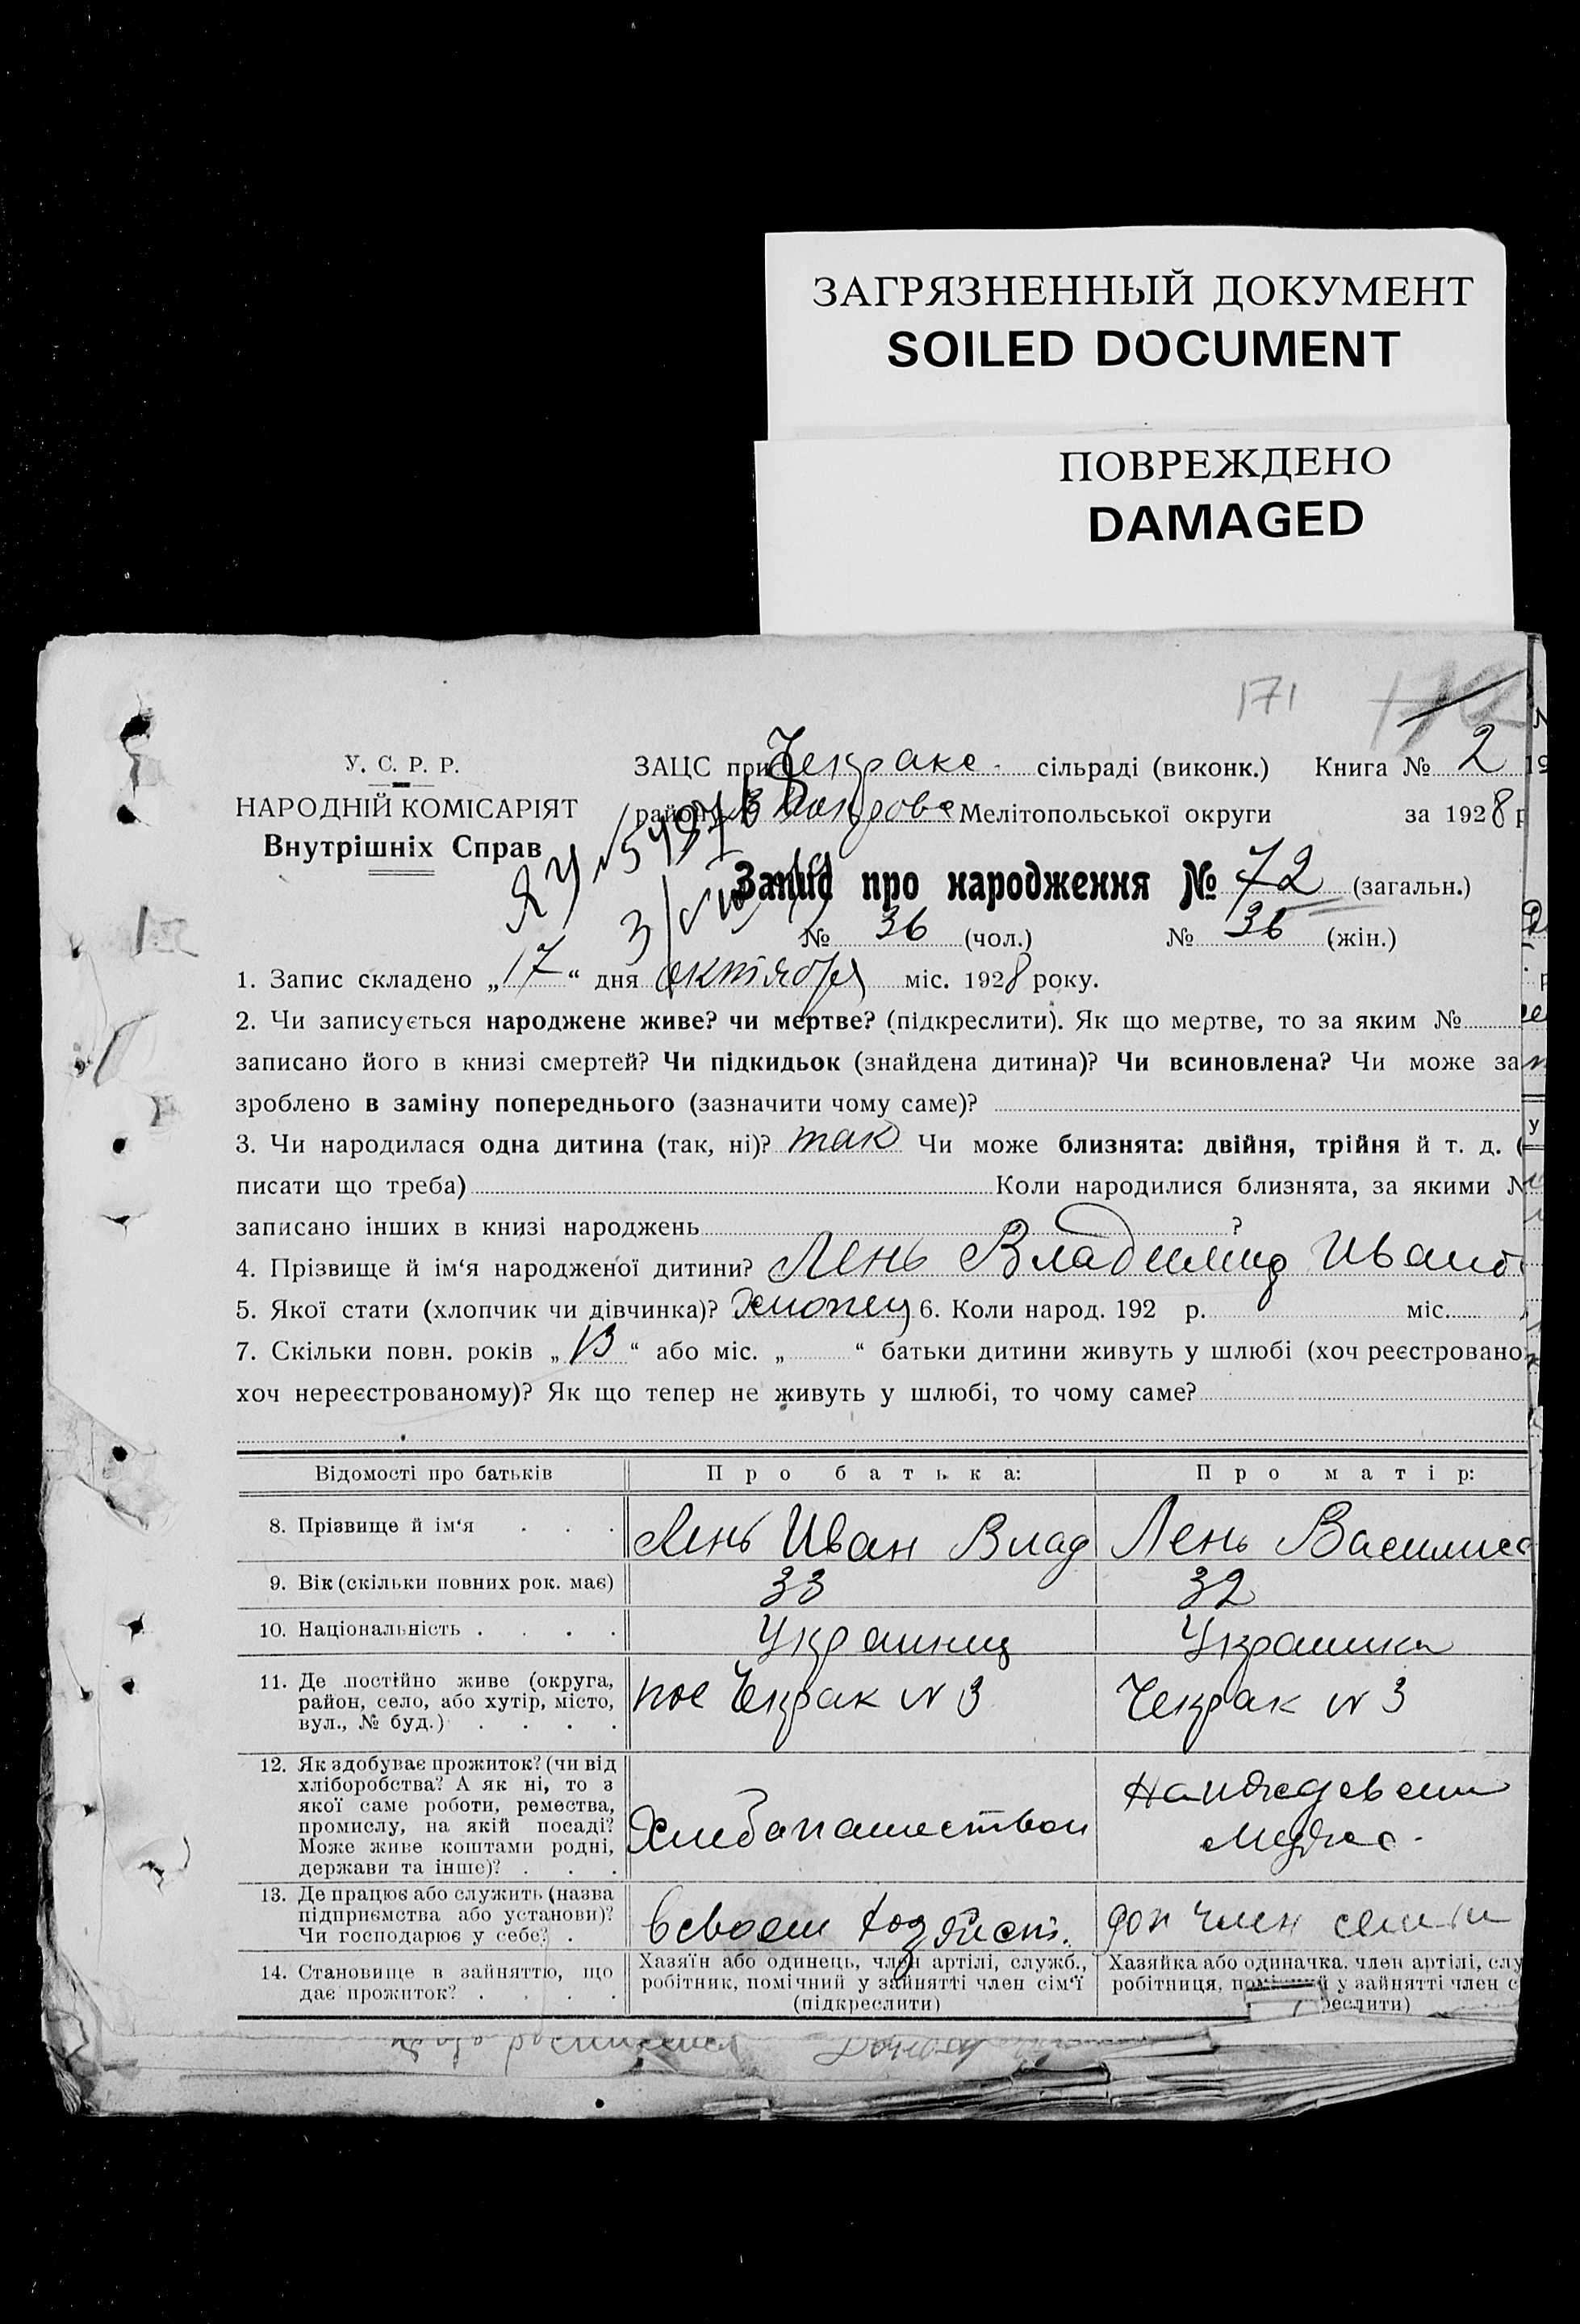 ЗАГРЯЗНЕННЫЙ ДОКУМЕНТ
SOILED DOCUMENT
ПОВРЕЖДЕНО
DAMAGED
171
У. С. Р. Р.
НАРОДНІЙ КОМІСАРІЯТ
Внутрішніх Справ
ЗАЦС при Чекраке сільраді (виконк.) Книга № 2
район Мелітопольської округи за 1928 р
Запис про народження № 72 (загальн.)
№ 36 (чол.) № 36 (жін.)
1. Запис складено „17“ дня октября міс. 1928 року.
2. Чи записується народжене живе? чи мертве? (підкреслити). Як що мертве, то за яким №
записано його в книзі смертей? Чи підкидьок (знайдена дитина)? Чи всиновлена? Чи може за
зроблено в заміну попереднього (зазначити чому саме)?
3. Чи народилася одна дитина (так, ні)? так Чи може близнята: двійня, трійня й т. д. (
писати що треба) Коли народилися близнята, за якими №
записано інших в книзі народжень ?
4. Прізвище й ім‘я народженої дитини? Лень Владимир Иванов
5. Якої стати (хлопчик чи дівчинка)? Хлопец 6. Коли народ. 192 р. міс.
7. Скільки повн. років „13“ або міс. „ “ батьки дитини живуть у шлюбі (хоч реєстровано
хоч нереєстрованому)? Як що тепер не живуть у шлюбі, то чому саме?
Відомості про батьків Про батька: Про матір:
8. Прізвище й ім‘я Лень Иван Влад Лень Василис
9. Вік (скільки повних рок. має) 33 32
10. Національність Украинец Украинка
11. Де постійно живе (округа,
район, село, або хутір, місто,
вул., № буд.)
пос Чекрак N 3 Чекрак N 3
12. Як здобуває прожиток? (чи від
хліборобства? А як ні, то з
якої саме роботи, ремества,
промислу, на якій посаді?
Може живе коштами родні,
держави та інше)?
Хлебопашеством
на иждевении
мужа
13. Де працює або служить (назва
підприємства або установи)?
Чи господарює у себе?
в своем хозяйст. доп член семьи
14. Становище в зайняттю, що
дає прожиток?
Хазяїн або одинець, член артілі, служб.,
робітник, помічний у зайнятті член сім‘ї
(підкреслити)
Хазяйка або одиначка, член артілі, слу
робітниця, у зайнятті член с
реслити)